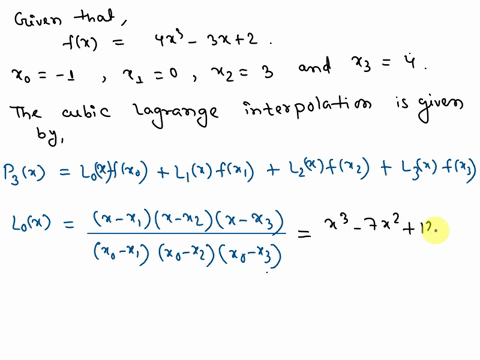 Given that,
f(x) = 4x³ - 3x + 2.
x₀ = -1 , x₁ = 0 , x₂ = 3 and x₃ = 4.
The cubic Lagrange interpolation is given
by,
P₃(x) = L₀(x)f(x₀) + L₁(x) f(x₁) + L₂(x) f(x₂) + L₃(x) f(x₃)
L₀(x) = (x-x₁)(x-x₂)(x-x₃) / (x₀-x₁) (x₀-x₂)(x₀-x₃) = x³ - 7x² + 12